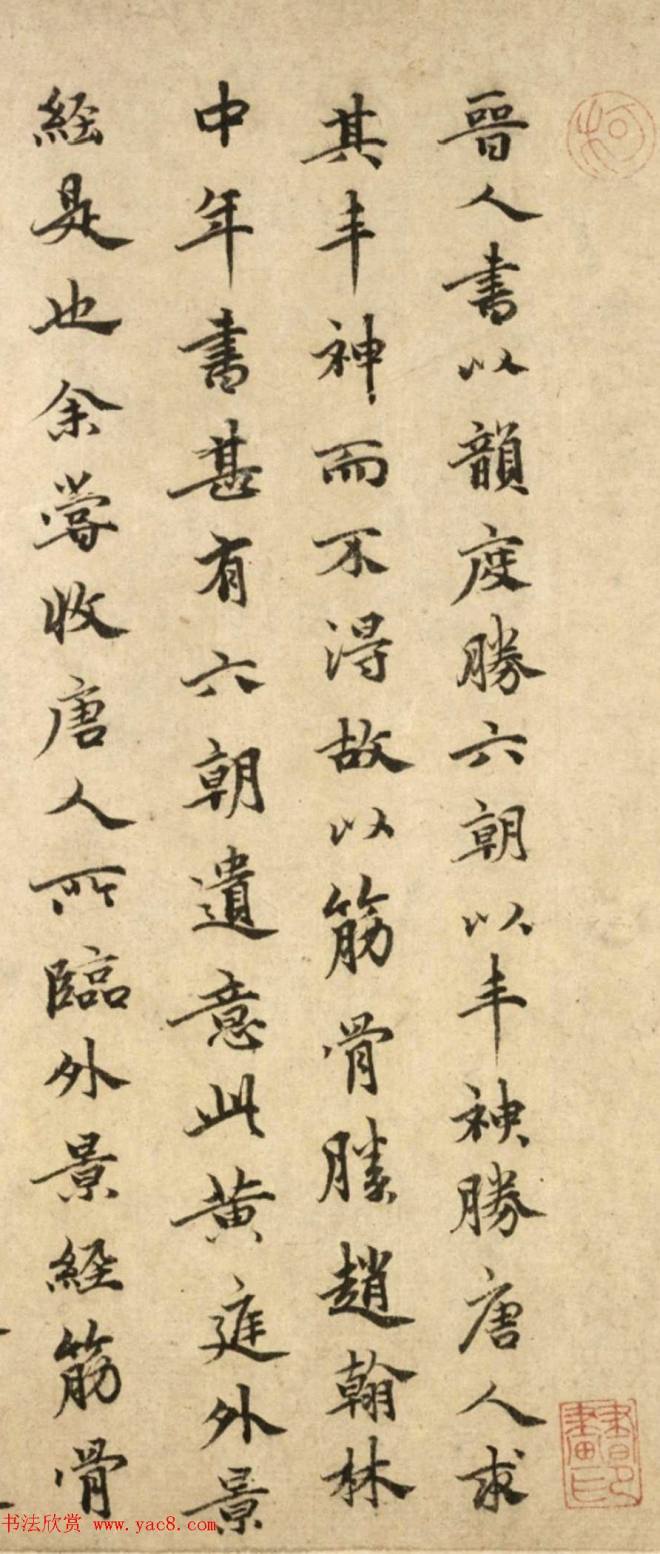 晉人書以韻度勝六朝以丰神勝唐人求
其丰神而不得故以筋骨勝趙翰林
中年書甚有六朝遺意此黃庭外景
經是也余嘗收唐人所臨外景經筋骨
柯
書畫印
书法欣赏 www.yac8.com